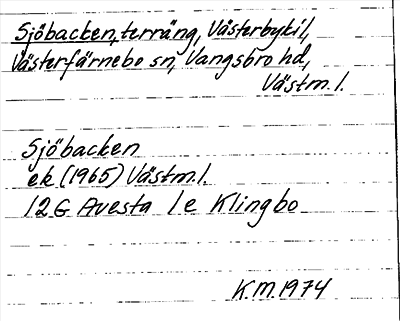 Sjöbacken, terräng, Västerbykil,
Västerfärnebo sn, Vangsbro hd,
Västm. l.
Sjöbacken
ek (1965) Västm. l.
12G Avesta 1e Klingbo
K.M. 1974